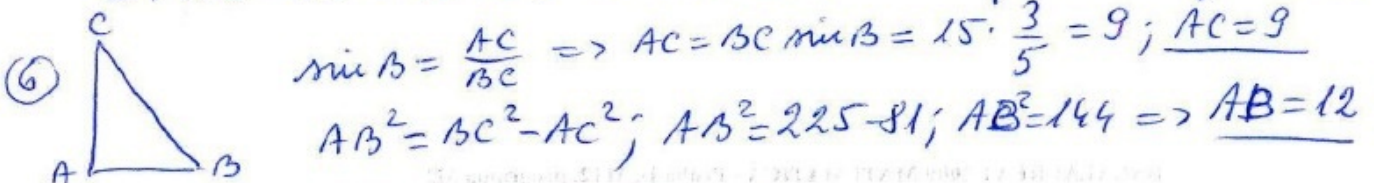 C
⑥ sin B = AC/BC => AC = BC sin B = 15 · 3/5 = 9 ; AC = 9
AB² = BC² - AC² ; AB² = 225 - 81 ; AB² = 144 => AB = 12
A B